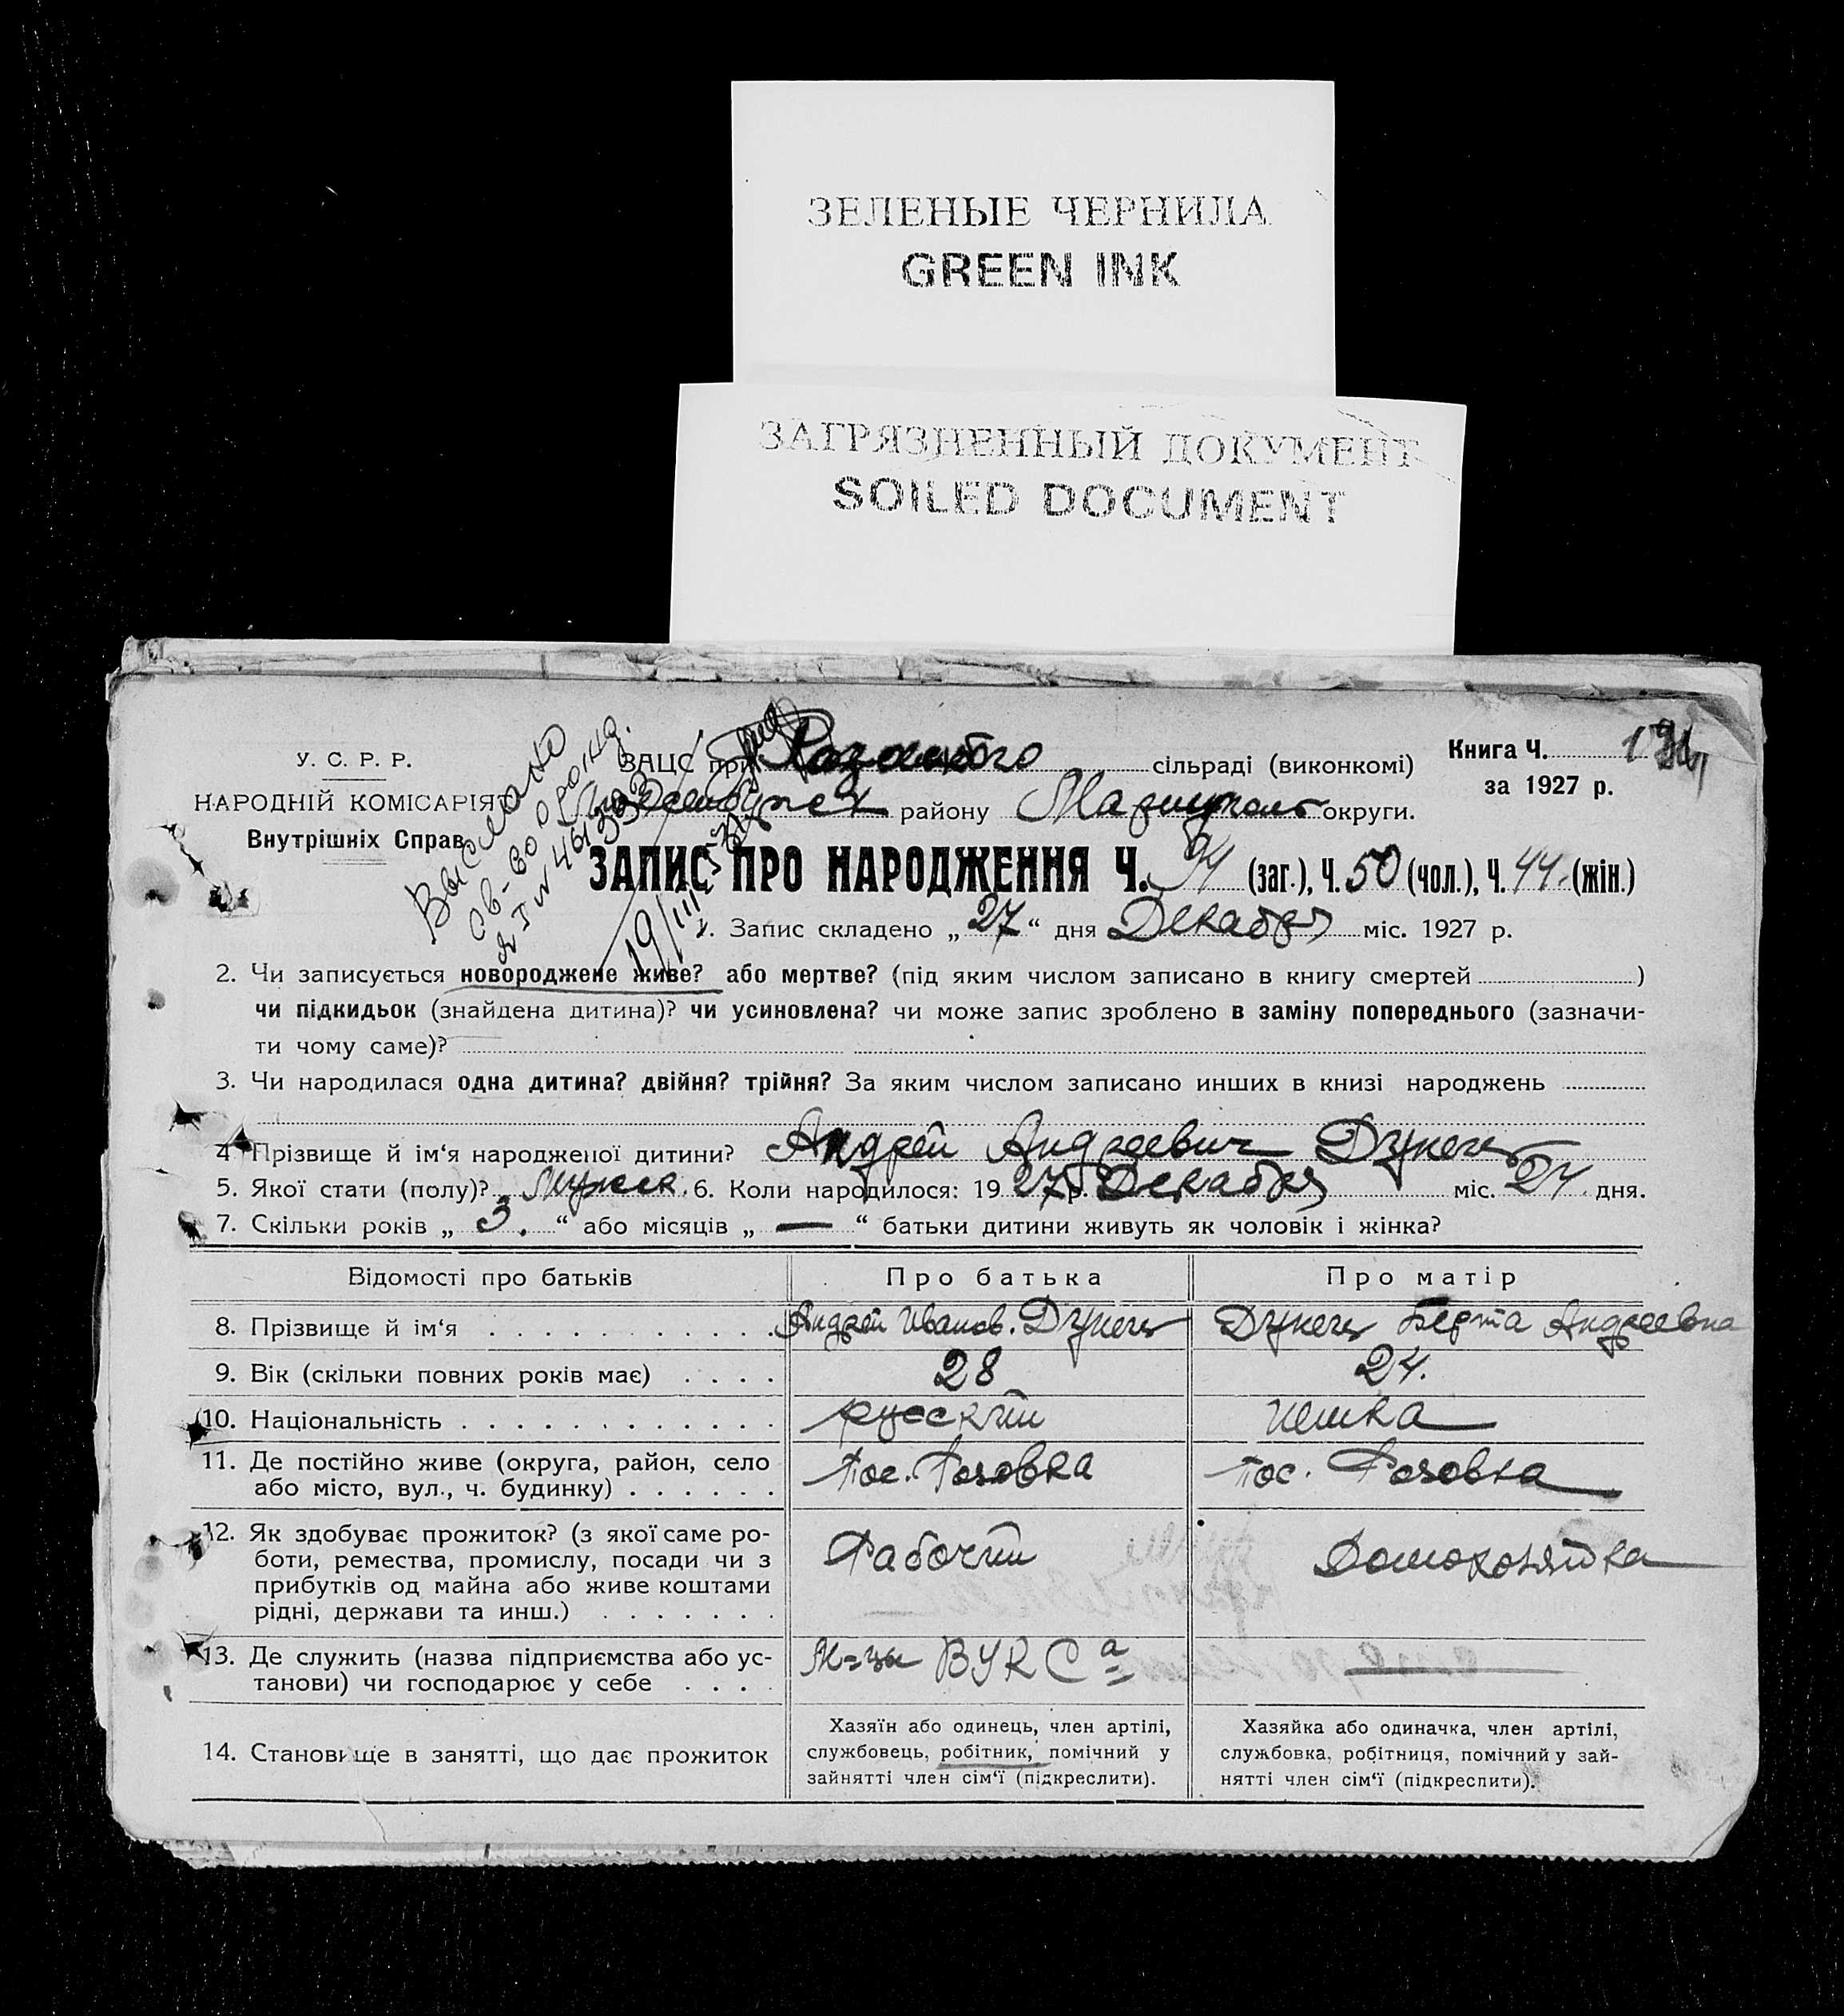 ЗЕЛЕНЫЕ ЧЕРНИЛА
GREEN INK
ЗАГРЯЗНЕННЫЙ ДОКУМЕНТ
SOILED DOCUMENT
У. С. Р. Р.
НАРОДНІЙ КОМІСАРІЯТ
Внутрішніх Справ
Выслано
св-во о рожд.
19/III
ЗАЦС при Розовского сільраді (виконкомі)
Книга Ч.
за 1927 р.
району Мариуполь округи.
ЗАПИС ПРО НАРОДЖЕННЯ Ч. 94 (заг.), Ч. 50 (чол.), Ч. 44. (жін.)
1. Запис складено „ 27 “ дня Декабря міс. 1927 р.
2. Чи записується новороджене живе? або мертве? (під яким числом записано в книгу смертей )
чи підкидьок (знайдена дитина)? чи усиновлена? чи може запис зроблено в заміну попереднього (зазначи-
ти чому саме)?
3. Чи народилася одна дитина? двійня? трійня? За яким числом записано инших в книзі народжень
4. Прізвище й ім‘я народженої дитини? Андрей Андреевич Дзукец
5. Якої стати (полу)? Мужск. 6. Коли народилося: 1927 р. Декабря міс. 24. дня.
7. Скільки років „ 3. “ або місяців „ — “ батьки дитини живуть як чоловік і жінка?
Відомості про батьків Про батька Про матір
8. Прізвище й ім‘я Андрей Иванов. Дзукец Дзукец Берта Андреевна
9. Вік (скільки повних років має) 28 24.
10. Національність русский немка
11. Де постійно живе (округа, район, село
або місто, вул., ч. будинку) Пос. Розовка Пос. Розовка
12. Як здобуває прожиток? (з якої саме ро-
боти, ремества, промислу, посади чи з
прибутків од майна або живе коштами
рідні, держави та инш.) Рабочий Домохозяйка
13. Де служить (назва підприємства або ус-
танови) чи господарює у себе
14. Становище в занятті, що дає прожиток
Хазяїн або одинець, член артілі,
службовець, робітник, помічний у
зайнятті член сім‘ї (підкреслити).
Хазяйка або одиначка, член артілі,
службовка, робітниця, помічний у зай-
нятті член сім‘ї (підкреслити).